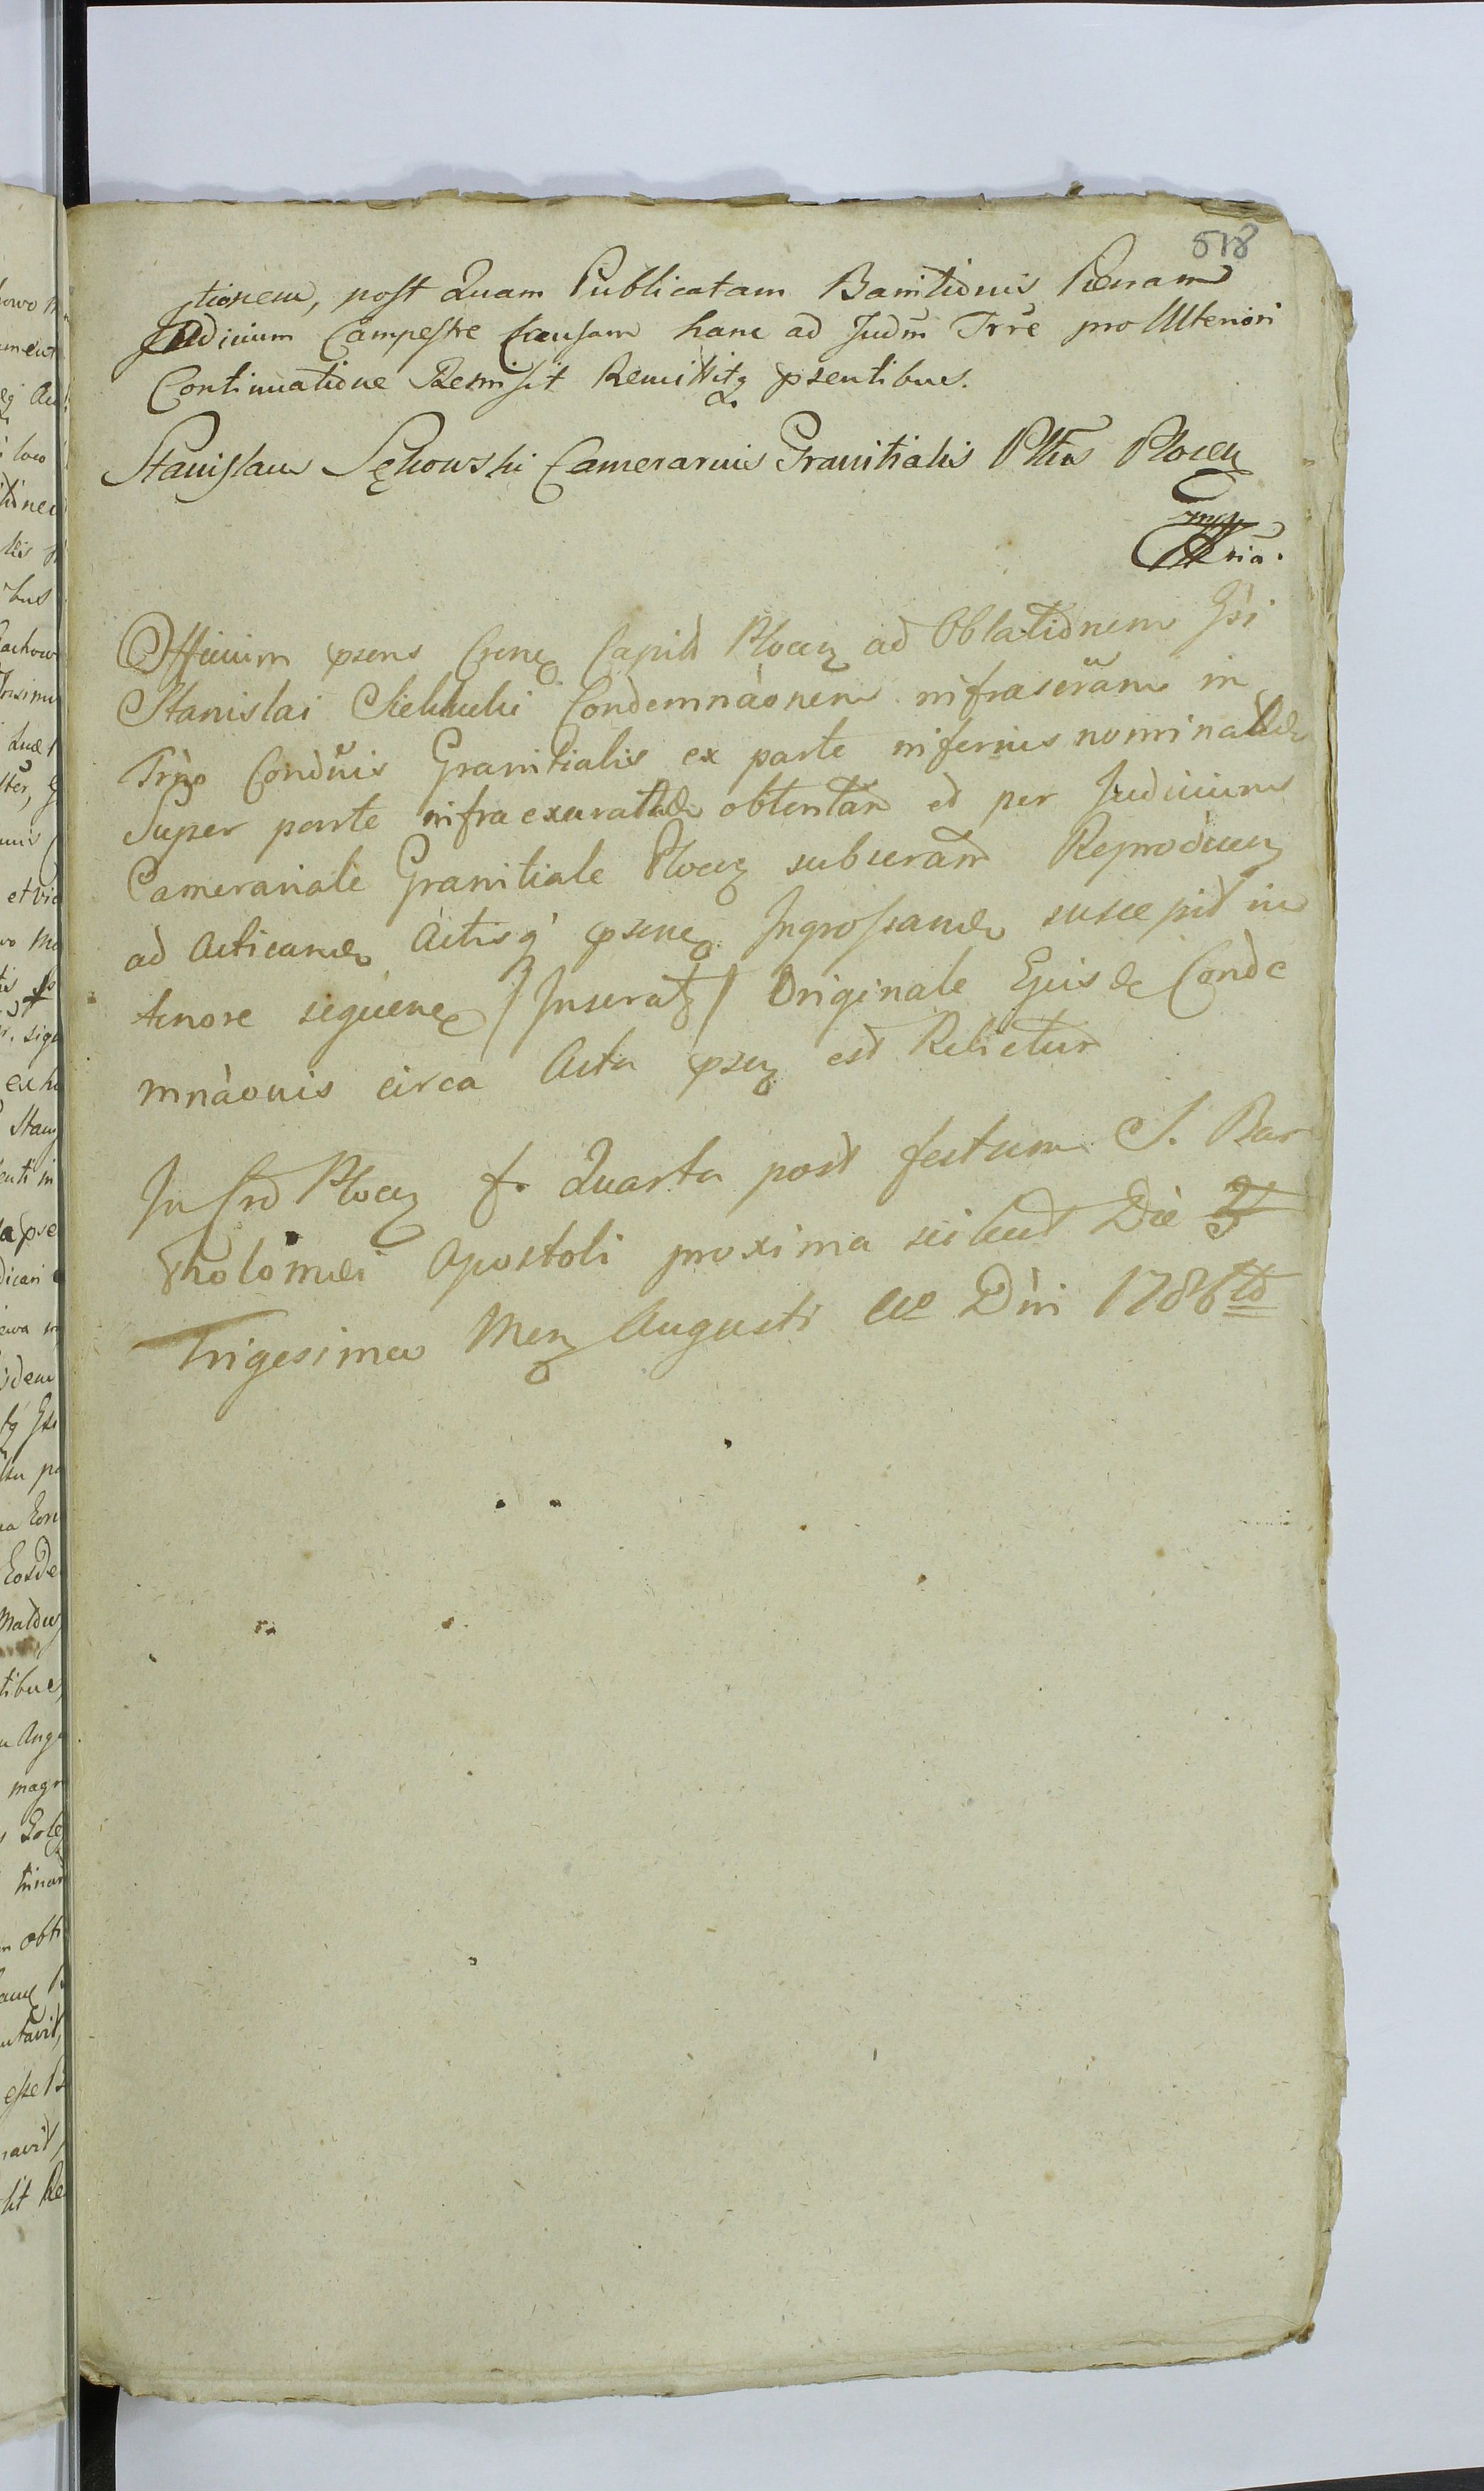 518
ctionem, post Quam Publicatam Banitionis Poenam
Judicium Campestre Causam hanc ad Judm Trre pro Ulteriori
Continuatione Remisit Remittitq psentibus.
Stanislaus Sękowski Camerarius Granitialis Pltus Plocen
mp
Officium psens Crense Capitle Plocen ad Oblationem Gsi
Stanislai Condemnaonem infrascram in
Trno Condcis Granitialis ex parte inferius nominatae
Super parte infra exarata obtentam et per Judicium
Camerariale Granitiale Plocen subscram Reproducen
ad acticand Actisq psene Ingrossand suscepit in
tenore sequene / Inserat / Originale Ejusde Conde
mnaonis circa Acta psen est Relictum
In Cro Plocen f. Quarta post festum S. Bar
tholomaei Apostoli proxima scilicet Die
Trigesima Men Augusti Ao Dni 1786to